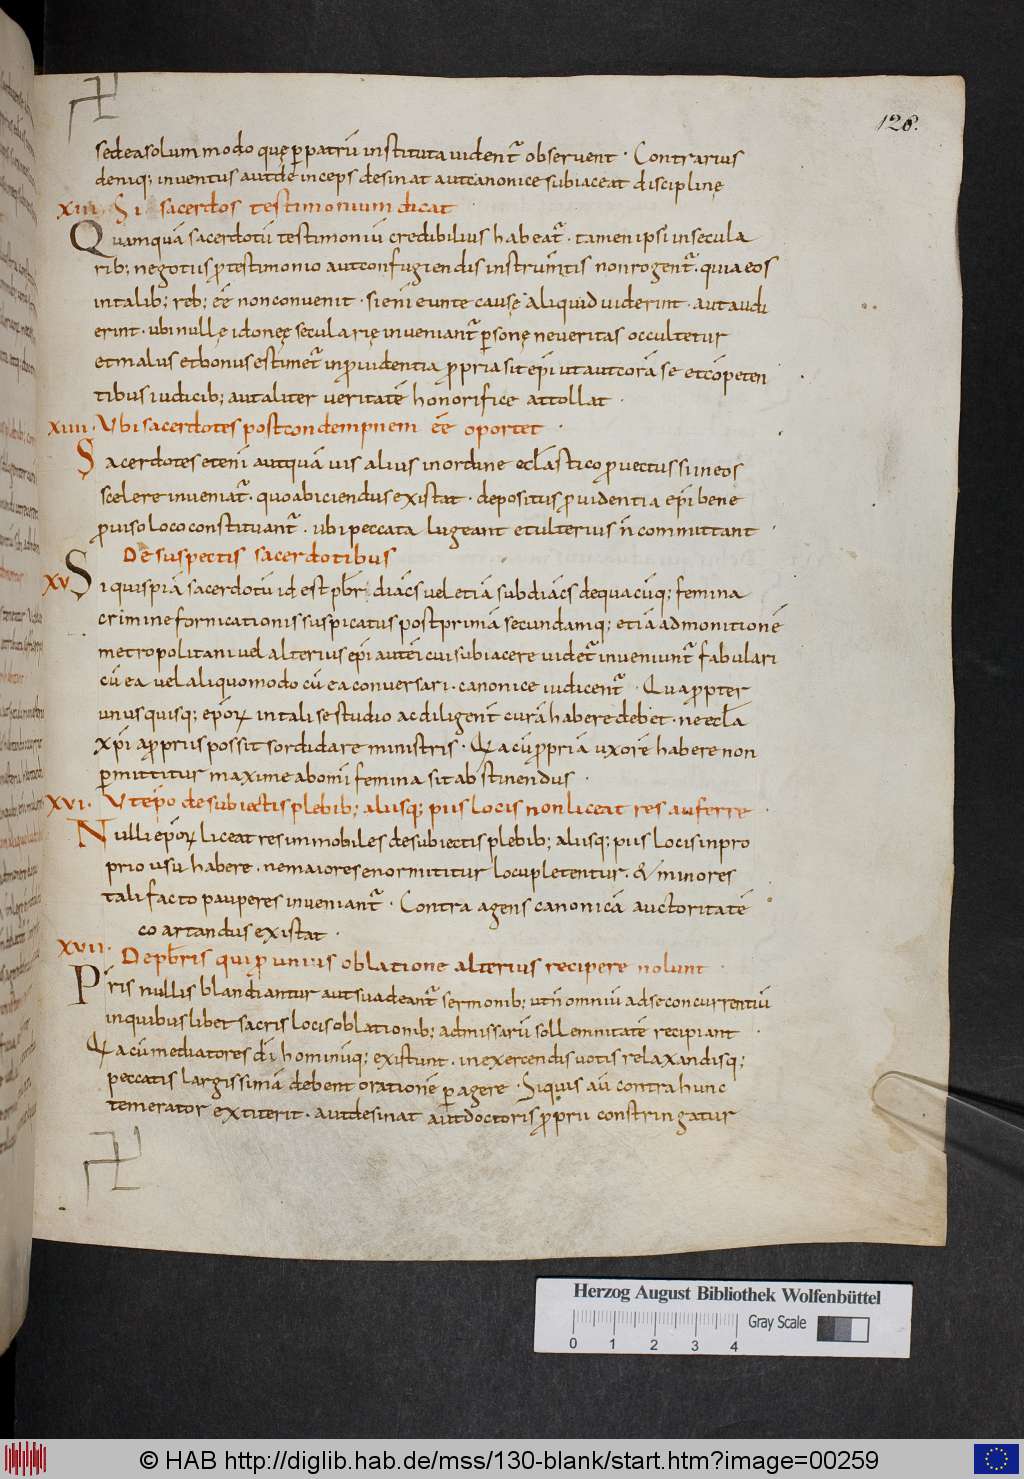 126.
sed ea solummodo quę ꝑ patrũ instituta uident̃ obseruent · Contrarius
deniq; inuentus aut deinceps desinat aut canonice subiaceat disciplinę
XIII. Si sacerdos testimonium dicat
Quamquã sacerdotũ testimoniũ credibilius habeat̃ · tamen ipsi in secula
rib; negotiis ꝓ testimonio aut confugiendis instrum̃tis non rogent̃ · quia eos
in talib; reb; eẽ non conuenit · si enĩ eunte causę aliquid uiderint · aut audi
erint · ubi nullę idoneę secularię inueniant̃ ꝑsonę ne ueritas occultetur
et malus et bonus estimet̃ in ꝓuidentia ꝓpria sit ep̃i ut aut corã se et cõpeten
tibus iudicib; aut aliter ueritatẽ honorifice attollat ·
XIIII. Ubi sacerdotes post condempnem eẽ oportet ·
Sacerdotes etenĩ aut quãuis alius in ordine ecl̃astico ꝓuectus si in eos
scelere inueniat̃ · quo abiciendus existat · depositus ꝓuidentia ep̃i bene
ꝓuiso loco constituant̃ · ubi peccata lugeant et ulterius ñ committant ·
De suspectis sacerdotibus
XV Si quispiã sacerdotũ id est pb̃r diac̃s uel etiã subdiac̃s de quacũq; femina
crimine fornicationis suspicatus post primã secundamq; etiã admonitionẽ
metropolitani uel alterius ep̃i autẽ cui subiacere uidet̃ inueniunt̃ fabulari
cũ ea uel aliquo modo cũ ea conuersari · canonice iudicent̃ · Quapropter
unusquisq; ep̃oꝝ in tali se studio ac diligent̃ curã habere debet · ne ecl̃a
xp̃i a ꝓpriis possit sordidare ministris · Quia cũ ꝓpria uxorẽ habere non
ꝑmittitur maxime ab om̃i femina sit abstinendus ·
XVI. Ut ep̃o de subiectis plebib; aliisq; piis locis non liceat res auferre ·
Nulli ep̃oꝝ liceat res immobiles de subiectis plebib; aliisq; piis locis in pro
prio usu habere · ne maiores enormititur locupletentur · & minores
tali facto pauperes inueniant̃ · Contra agens canonicã auctoritatẽ
coartandus existat ·
XVII. De pb̃ris qui ꝓ unius oblatione alterius recipere nolunt ·
Pr̃is nullis blandiantur aut suadeant̃ sermonib; ut ñ omniũ ad se concurrentiũ
in quibuslibet sacris locis oblationib; ad missarũ sollemnitatẽ recipiant ·
Quia cũ mediatores dĩ hominũq; existunt · in exercendis uotis relaxandisq;
peccatis largissimã debent orationẽ ꝑagere · Siquis aũ contra hunc
temerator extiterit · aut desinat aut doctoris ꝓprii constringatur
Herzog August Bibliothek Wolfenbüttel
Gray Scale
0 1 2 3 4
© HAB http://diglib.hab.de/mss/130-blank/start.htm?image=00259